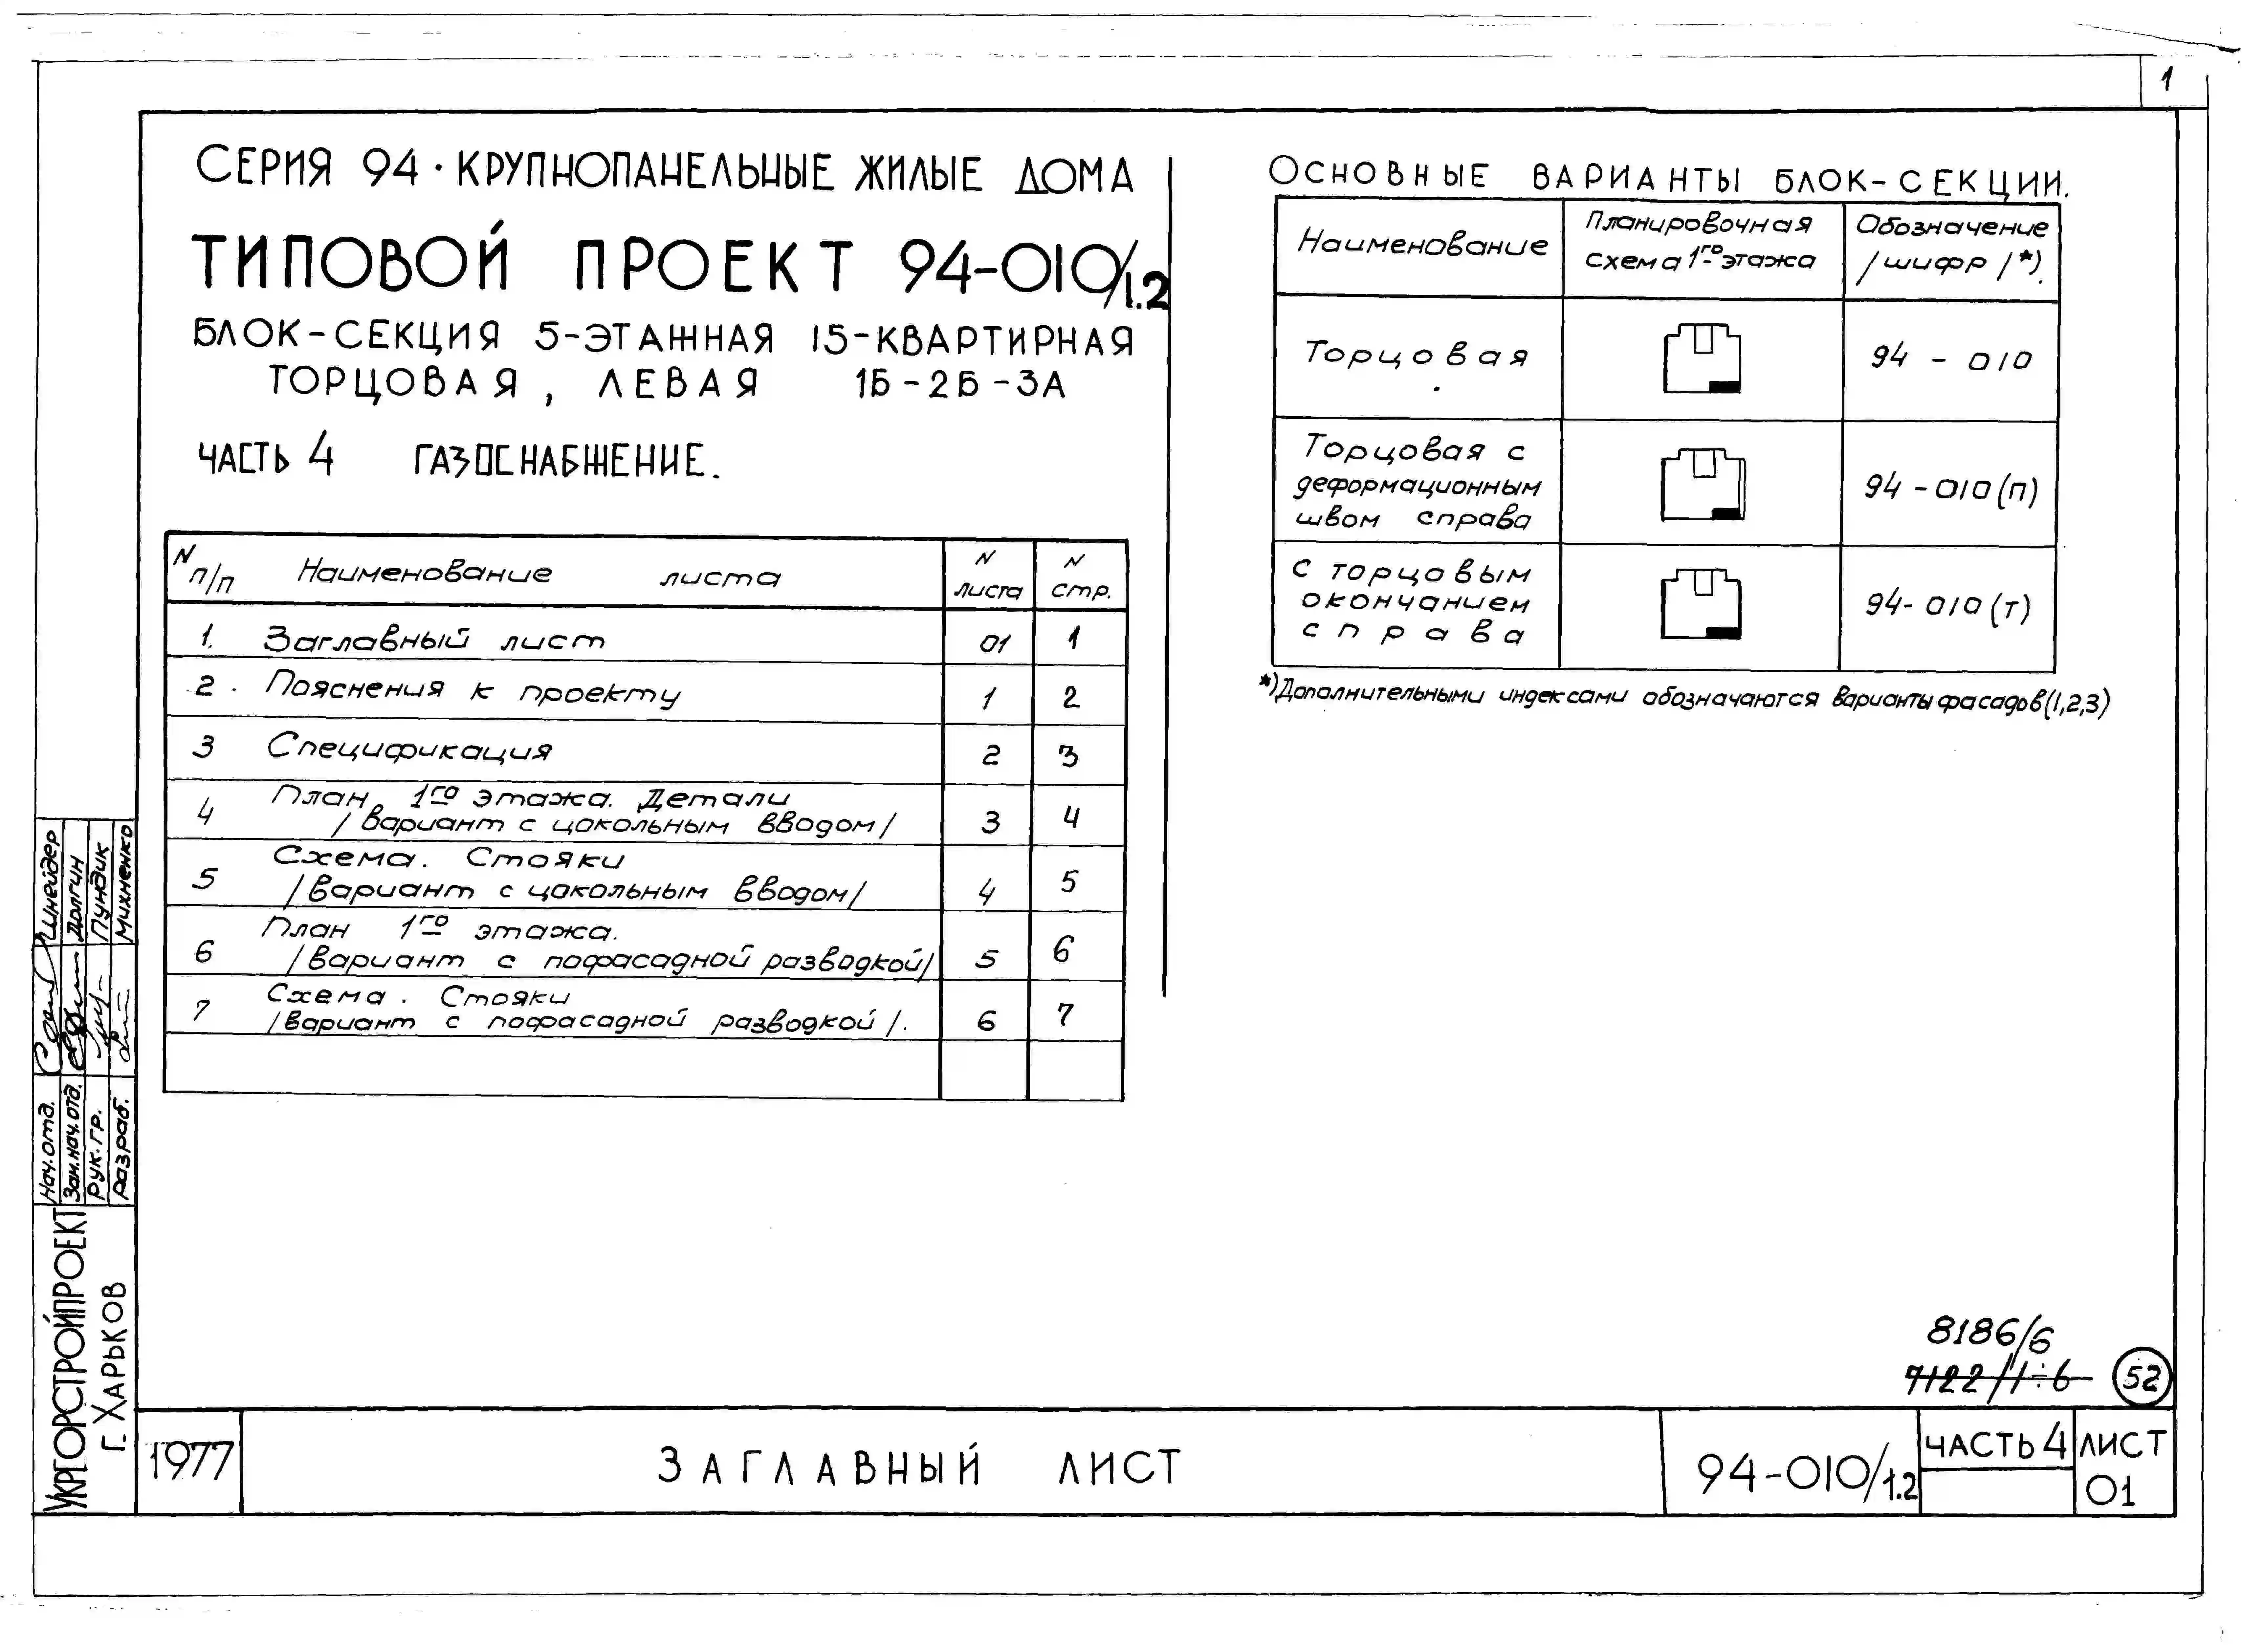 1
СЕРИЯ 94 · КРУПНОПАНЕЛЬНЫЕ ЖИЛЫЕ ДОМА
ТИПОВОЙ ПРОЕКТ 94-010/1.2
БЛОК-СЕКЦИЯ 5-ЭТАЖНАЯ 15-КВАРТИРНАЯ
ТОРЦОВАЯ, ЛЕВАЯ 1Б-2Б-3А
ЧАСТЬ 4 ГАЗОСНАБЖЕНИЕ.
N п/п Наименование листа N листа N стр.
1. Заглавный лист 01 1
2. Пояснения к проекту 1 2
3 Спецификация 2 3
4 План 1го этажа. Детали
/вариант с цокольным вводом/ 3 4
5 Схема. Стояки
/вариант с цокольным вводом/ 4 5
6 План 1го этажа.
/вариант с пофасадной разводкой/ 5 6
7 Схема. Стояки
/вариант с пофасадной разводкой/. 6 7
ОСНОВНЫЕ ВАРИАНТЫ БЛОК-СЕКЦИИ.
Наименование
Планировочная
схема 1го этажа
Обозначение
/шифр/*).
Торцовая 94-010
Торцовая с
деформационным
швом справа
94-010(п)
с торцовым
окончанием
справа
94-010(т)
*) Дополнительными индексами обозначаются варианты фасадов (1,2,3)
Нач.отд. Шнейдер
Зам.нач.отд. Долгин
Рук.гр. Пундик
Разраб. Михненко
УКРГОРСТРОЙПРОЕКТ
г. ХАРЬКОВ
8186/6
7122/1÷6
52
1977
ЗАГЛАВНЫЙ ЛИСТ
94-010/1.2
ЧАСТЬ 4
ЛИСТ
01